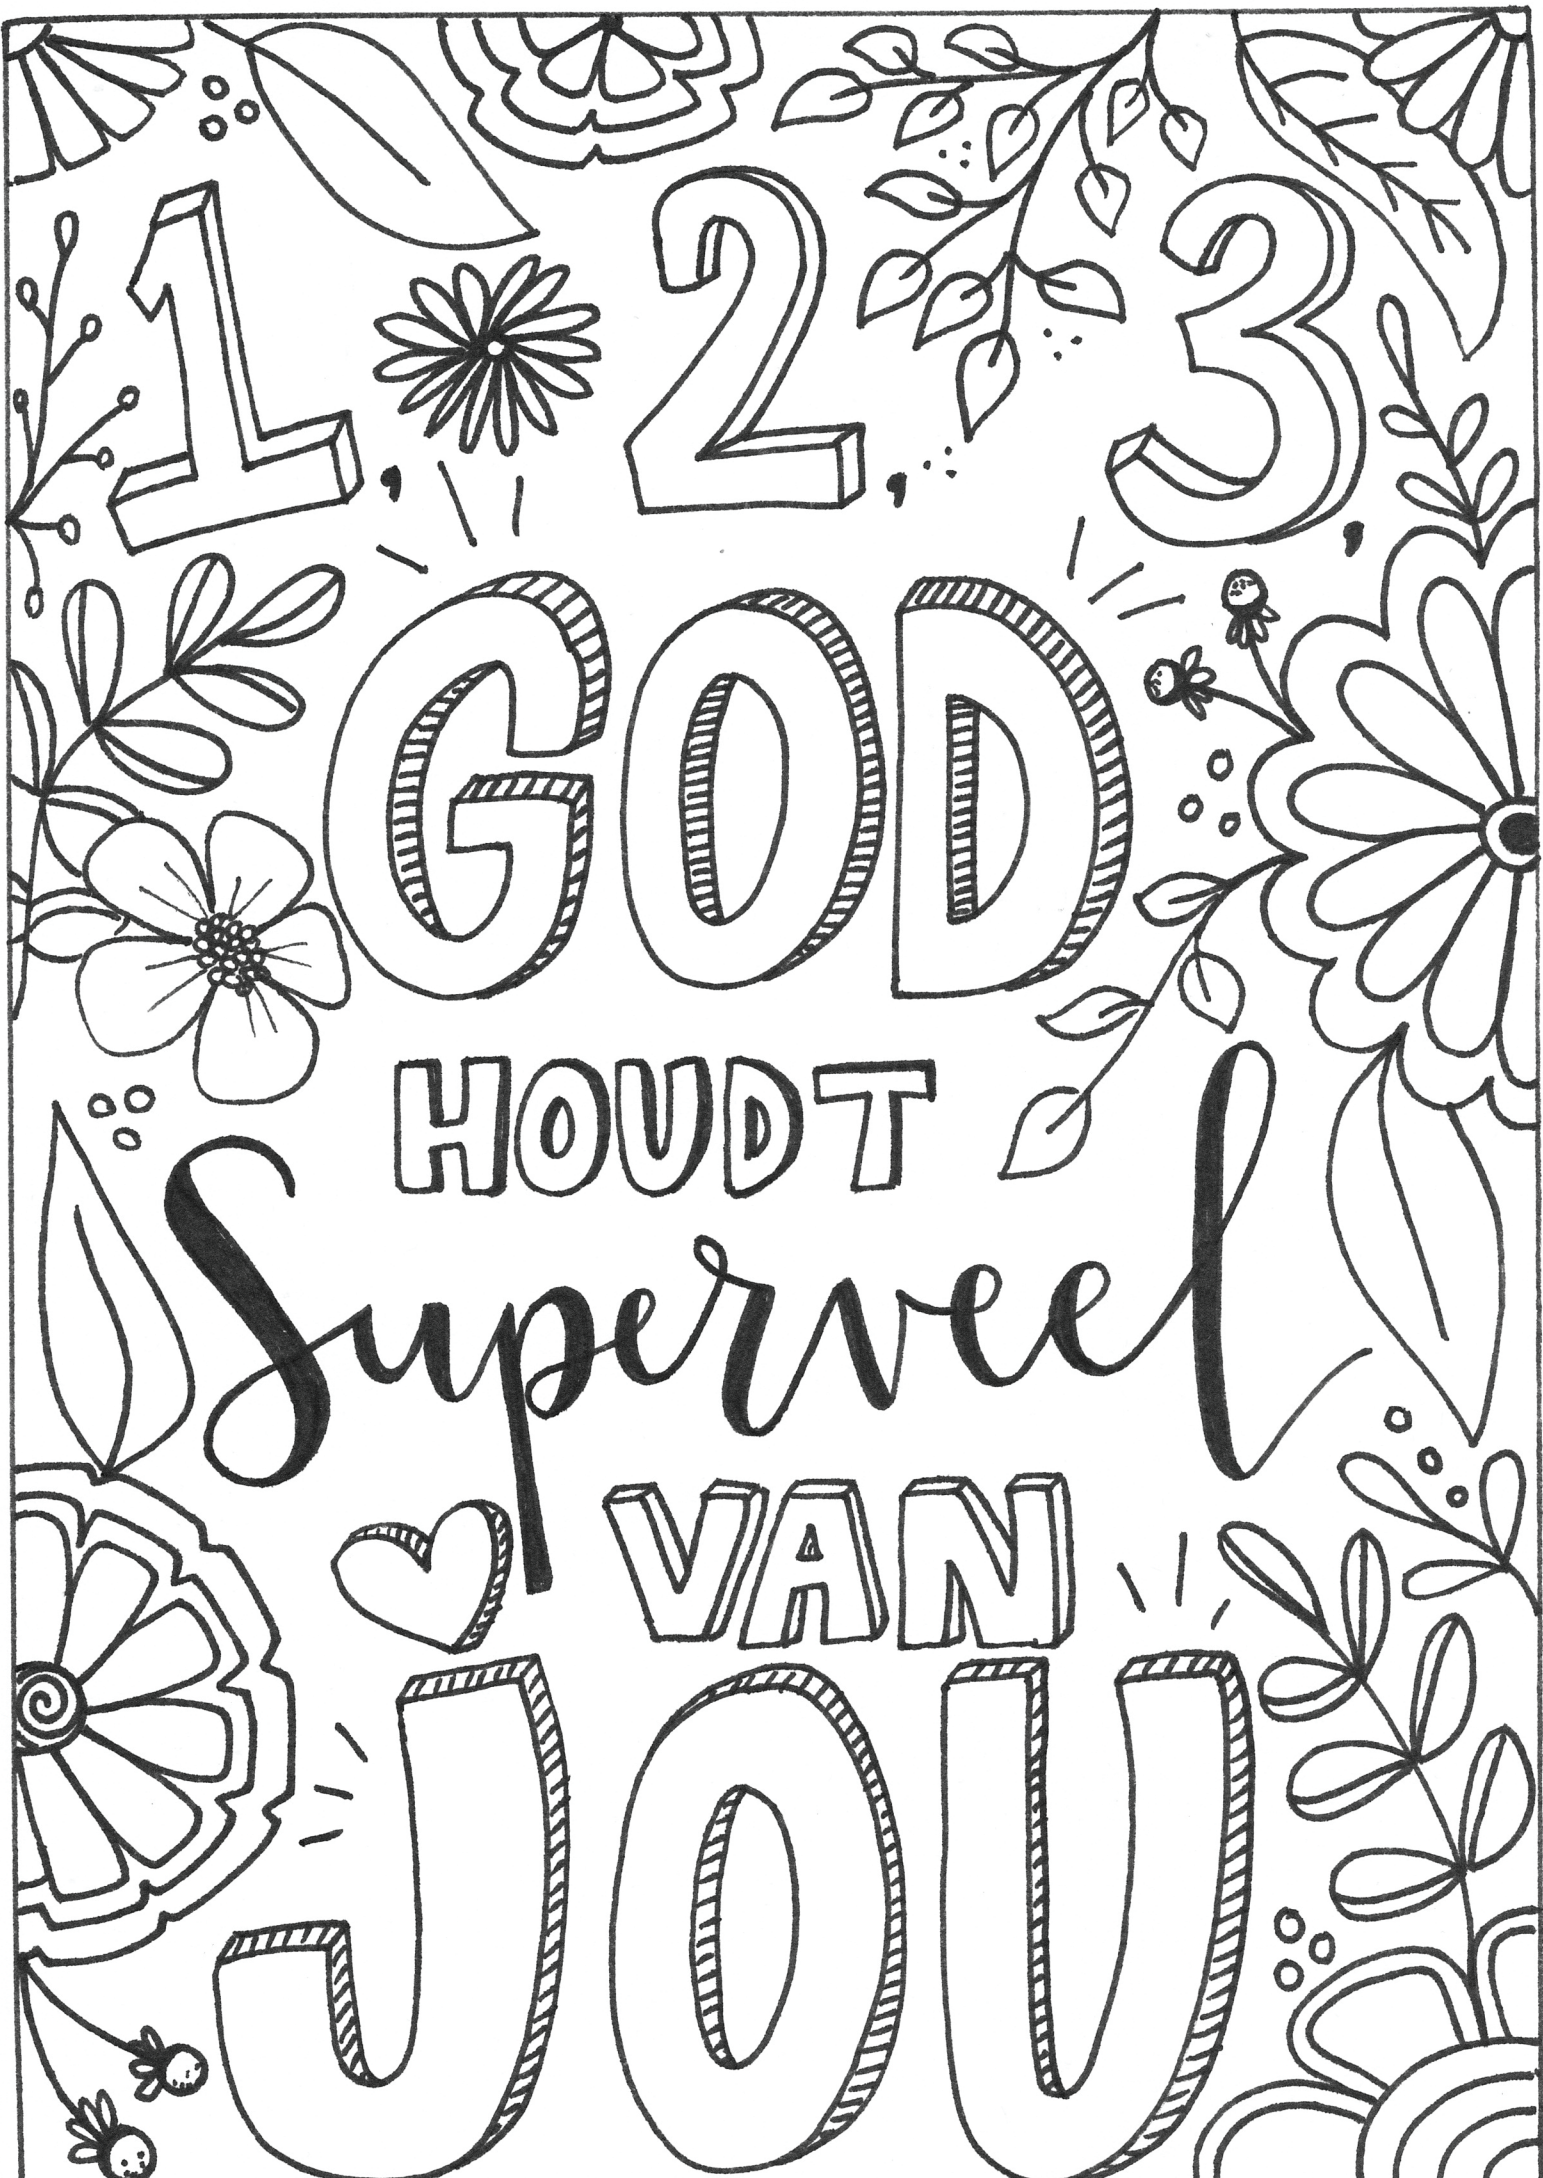 1, 2, 3,
GOD
HOUDT
Superveel
VAN
JOU